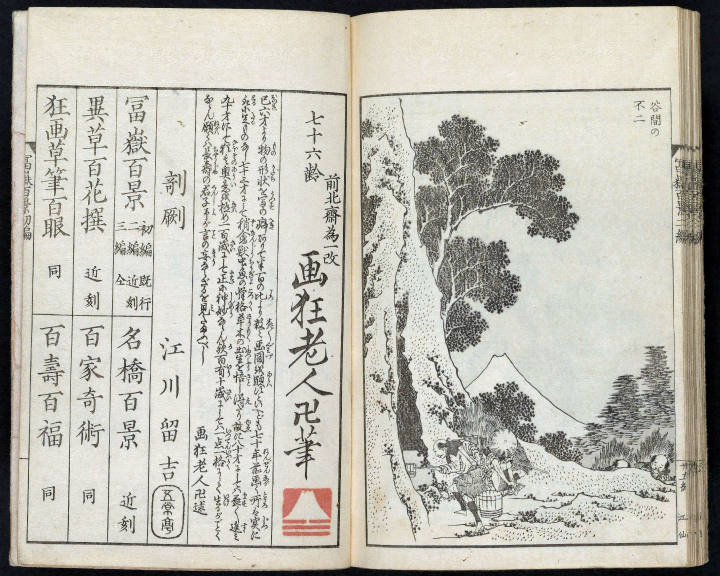 谷間の
不二
冨嶽百景二編
七十六齢
前北齋為一改
画狂老人卍筆
己六才より物の形状を写の癖ありて半百の比より数々画図を顕すといへども七十年前画く所は実に
取に足ものなし七十三才にして稍禽獣虫魚の骨格草木の出生を悟し得たり故に八十六才にしては益々進み
九十才にして猶其奥意を極め一百歳にして正に神妙ならん歟百有十歳にしては一点一格にして生るがごとく
ならん願くは長寿の君子予が言の妄ならざるを見たまふべし
画狂老人卍述
剞劂 江川留吉
五常亭
冨嶽百景 初編 既行 二編 近刻 三編 仝
名橋百景 近刻
異草百花撰 近刻
百家奇術 同
狂画草筆百眼 同
百壽百福 同
冨嶽百景初編